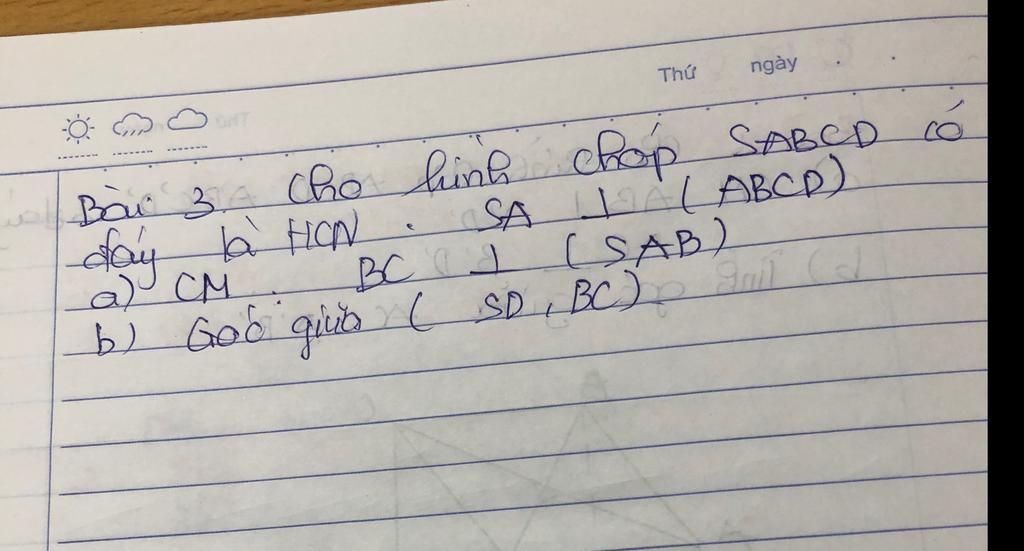 Thứ ngày
Bài 3. Cho hình chóp SABCD có
đáy là HCN. SA ⊥ (ABCD)
a) CM. BC ⊥ (SAB)
b) Goó giữa ( SD, BC)